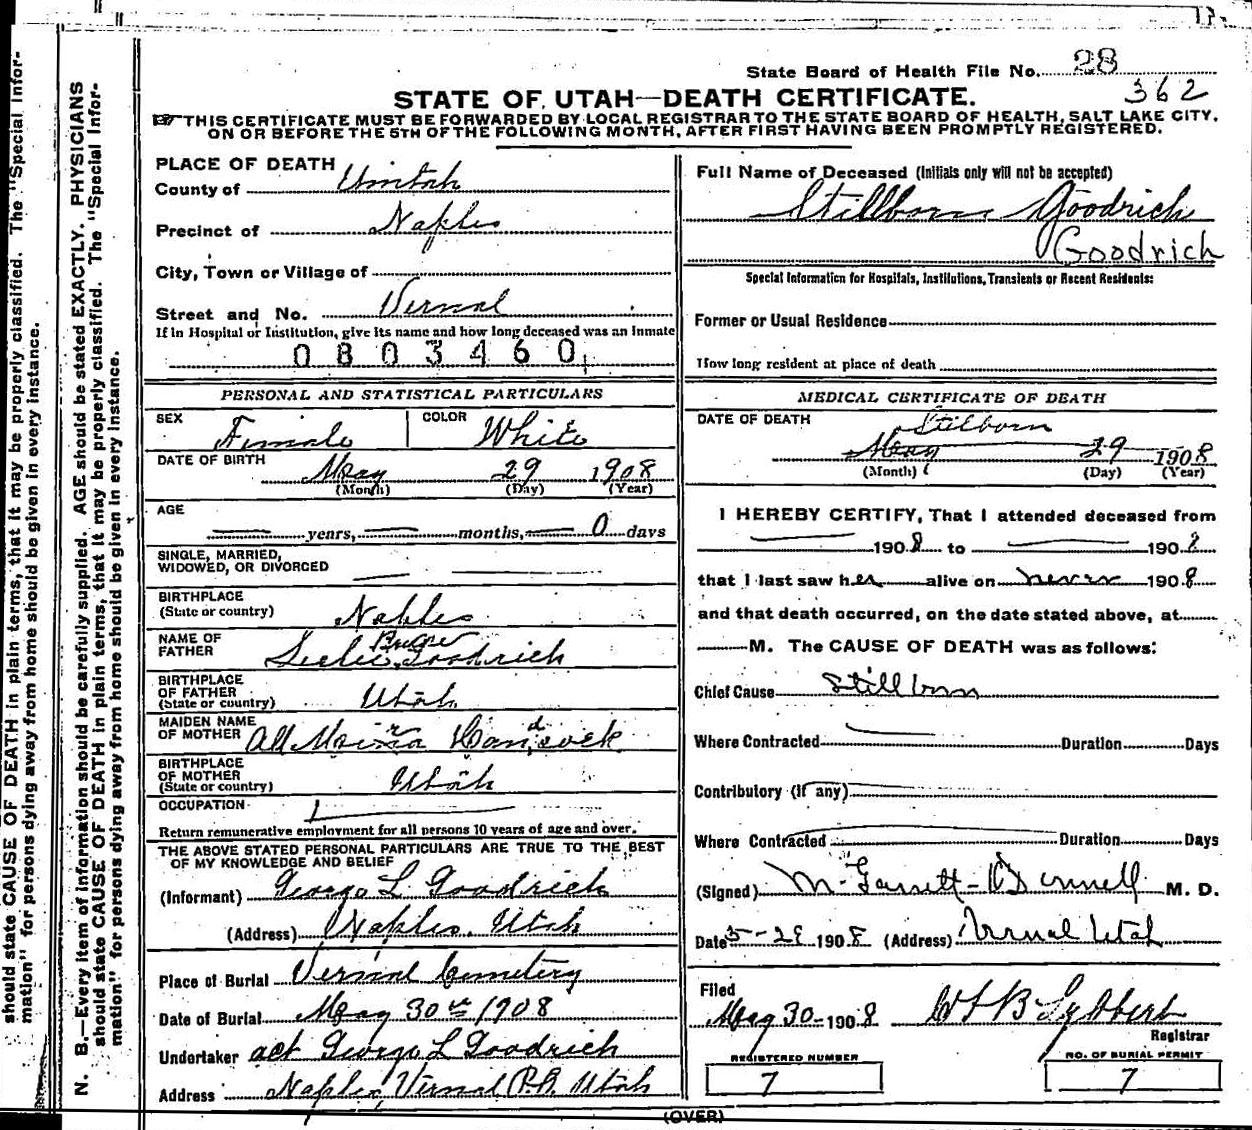 State Board of Health File No. 28
362
STATE OF UTAH—DEATH CERTIFICATE.
☞THIS CERTIFICATE MUST BE FORWARDED BY LOCAL REGISTRAR TO THE STATE BOARD OF HEALTH, SALT LAKE CITY,
ON OR BEFORE THE 5TH OF THE FOLLOWING MONTH, AFTER FIRST HAVING BEEN PROMPTLY REGISTERED.
PLACE OF DEATH
County of Uintah
Precinct of Naples
City, Town or Village of
Street and No. Vernal
If in Hospital or Institution, give its name and how long deceased was an inmate
0803460
Full Name of Deceased (Initials only will not be accepted)
Stillborn Goodrich
Goodrich
Special Information for Hospitals, Institutions, Transients or Recent Residents:
Former or Usual Residence
How long resident at place of death
PERSONAL AND STATISTICAL PARTICULARS
SEX Female COLOR White
DATE OF BIRTH May 29 1908
(Month) (Day) (Year)
AGE
years, months, 0 days
SINGLE, MARRIED,
WIDOWED, OR DIVORCED
BIRTHPLACE
(State or country) Naples
NAME OF
FATHER Leslie Goodrich
BIRTHPLACE
OF FATHER
(State or country) Utah
MAIDEN NAME
OF MOTHER
BIRTHPLACE
OF MOTHER
(State or country) Utah
OCCUPATION
Return remunerative employment for all persons 10 years of age and over.
THE ABOVE STATED PERSONAL PARTICULARS ARE TRUE TO THE BEST
OF MY KNOWLEDGE AND BELIEF
(Informant) George L Goodrich
(Address) Naples, Utah
Place of Burial Vernal Cemetery
Date of Burial May 30th 1908
Undertaker act George L Goodrich
Address Naples, Vernal P.O. Utah
MEDICAL CERTIFICATE OF DEATH
Stilborn
DATE OF DEATH May 29 1908
(Month) (Day) (Year)
I HEREBY CERTIFY, That I attended deceased from
1908 to 1908
that I last saw her alive on never 1908
and that death occurred, on the date stated above, at
M. The CAUSE OF DEATH was as follows:
Chief Cause Stillborn
Where Contracted Duration Days
Contributory (if any)
Where Contracted Duration Days
(Signed) M. Garrett-O'Donnell M. D.
Date 5-29 1908 (Address) Vernal Utah
Filed
May 30-1908
Registrar
REGISTERED NUMBER
7
NO. OF BURIAL PERMIT
7
(OVER)
N. B.—Every item of information should be carefully supplied. AGE should be stated EXACTLY. PHYSICIANS
should state CAUSE OF DEATH in plain terms, that it may be properly classified. The "Special Infor-
mation" for persons dying away from home should be given in every instance.
should state CAUSE OF DEATH in plain terms, that it may be properly classified. The "Special Infor-
mation" for persons dying away from home should be given in every instance.